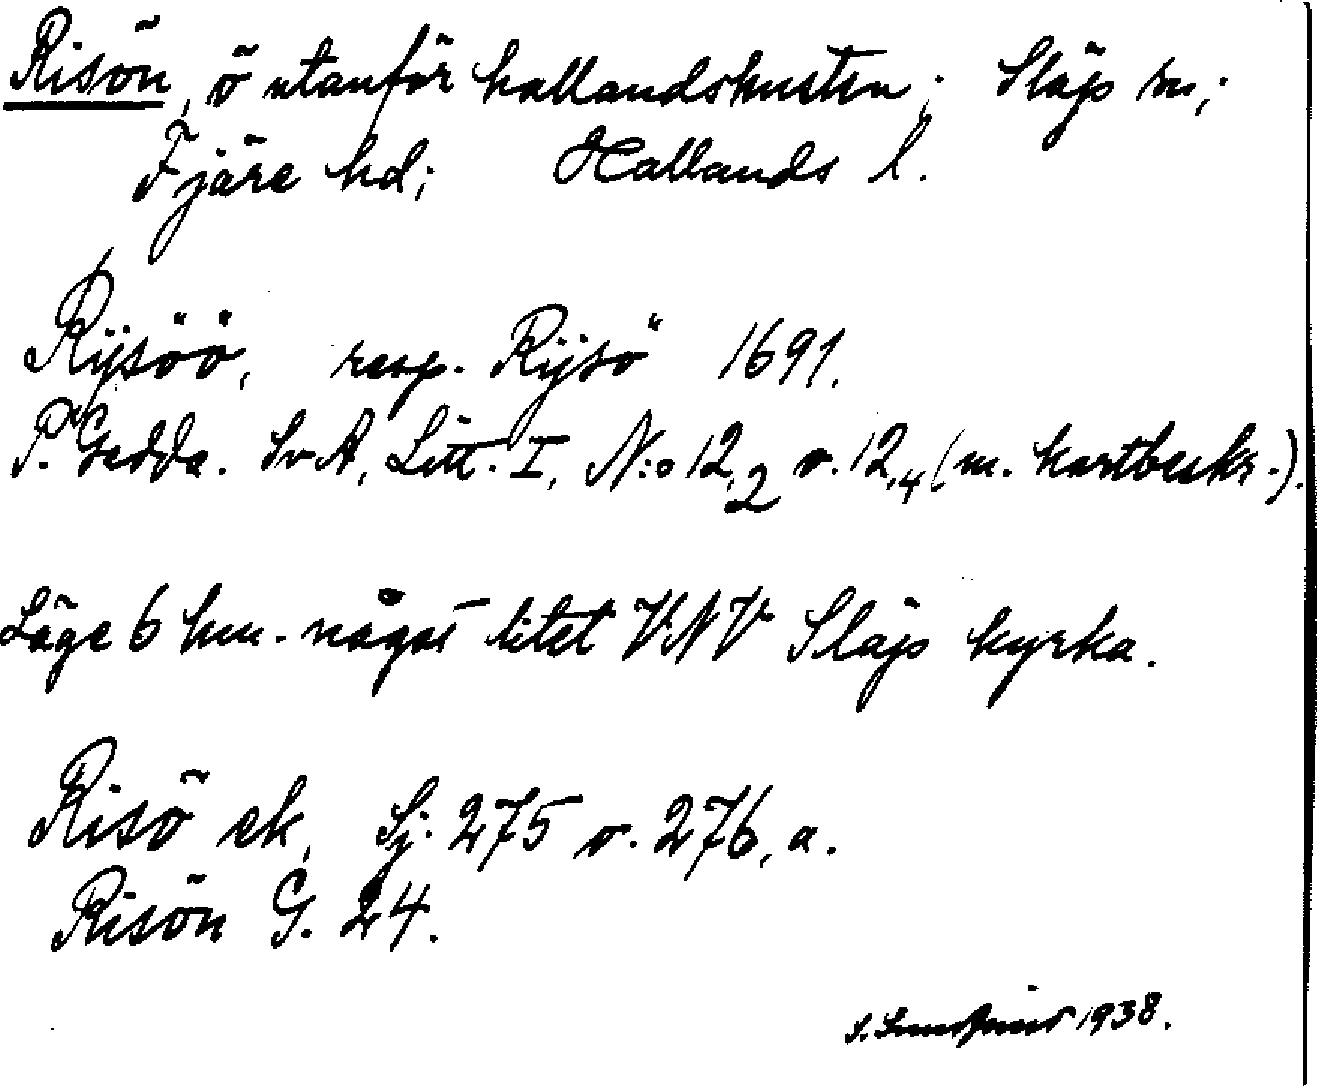 Risön, ö utanför hallandskusten; Släps sn;
Fjäre hd; Hallands l.
Rijsöö, resp. Rijsö 1691.
P. Gedda. SvA, Litt. I, N:o 12,2 o. 12,4 (m. kartbeskr.).
Läge 6 km. något litet VNV Släps kyrka.
Risö ek, Sj. 275 o. 276, a.
Risön G. 24.
S. 1938.